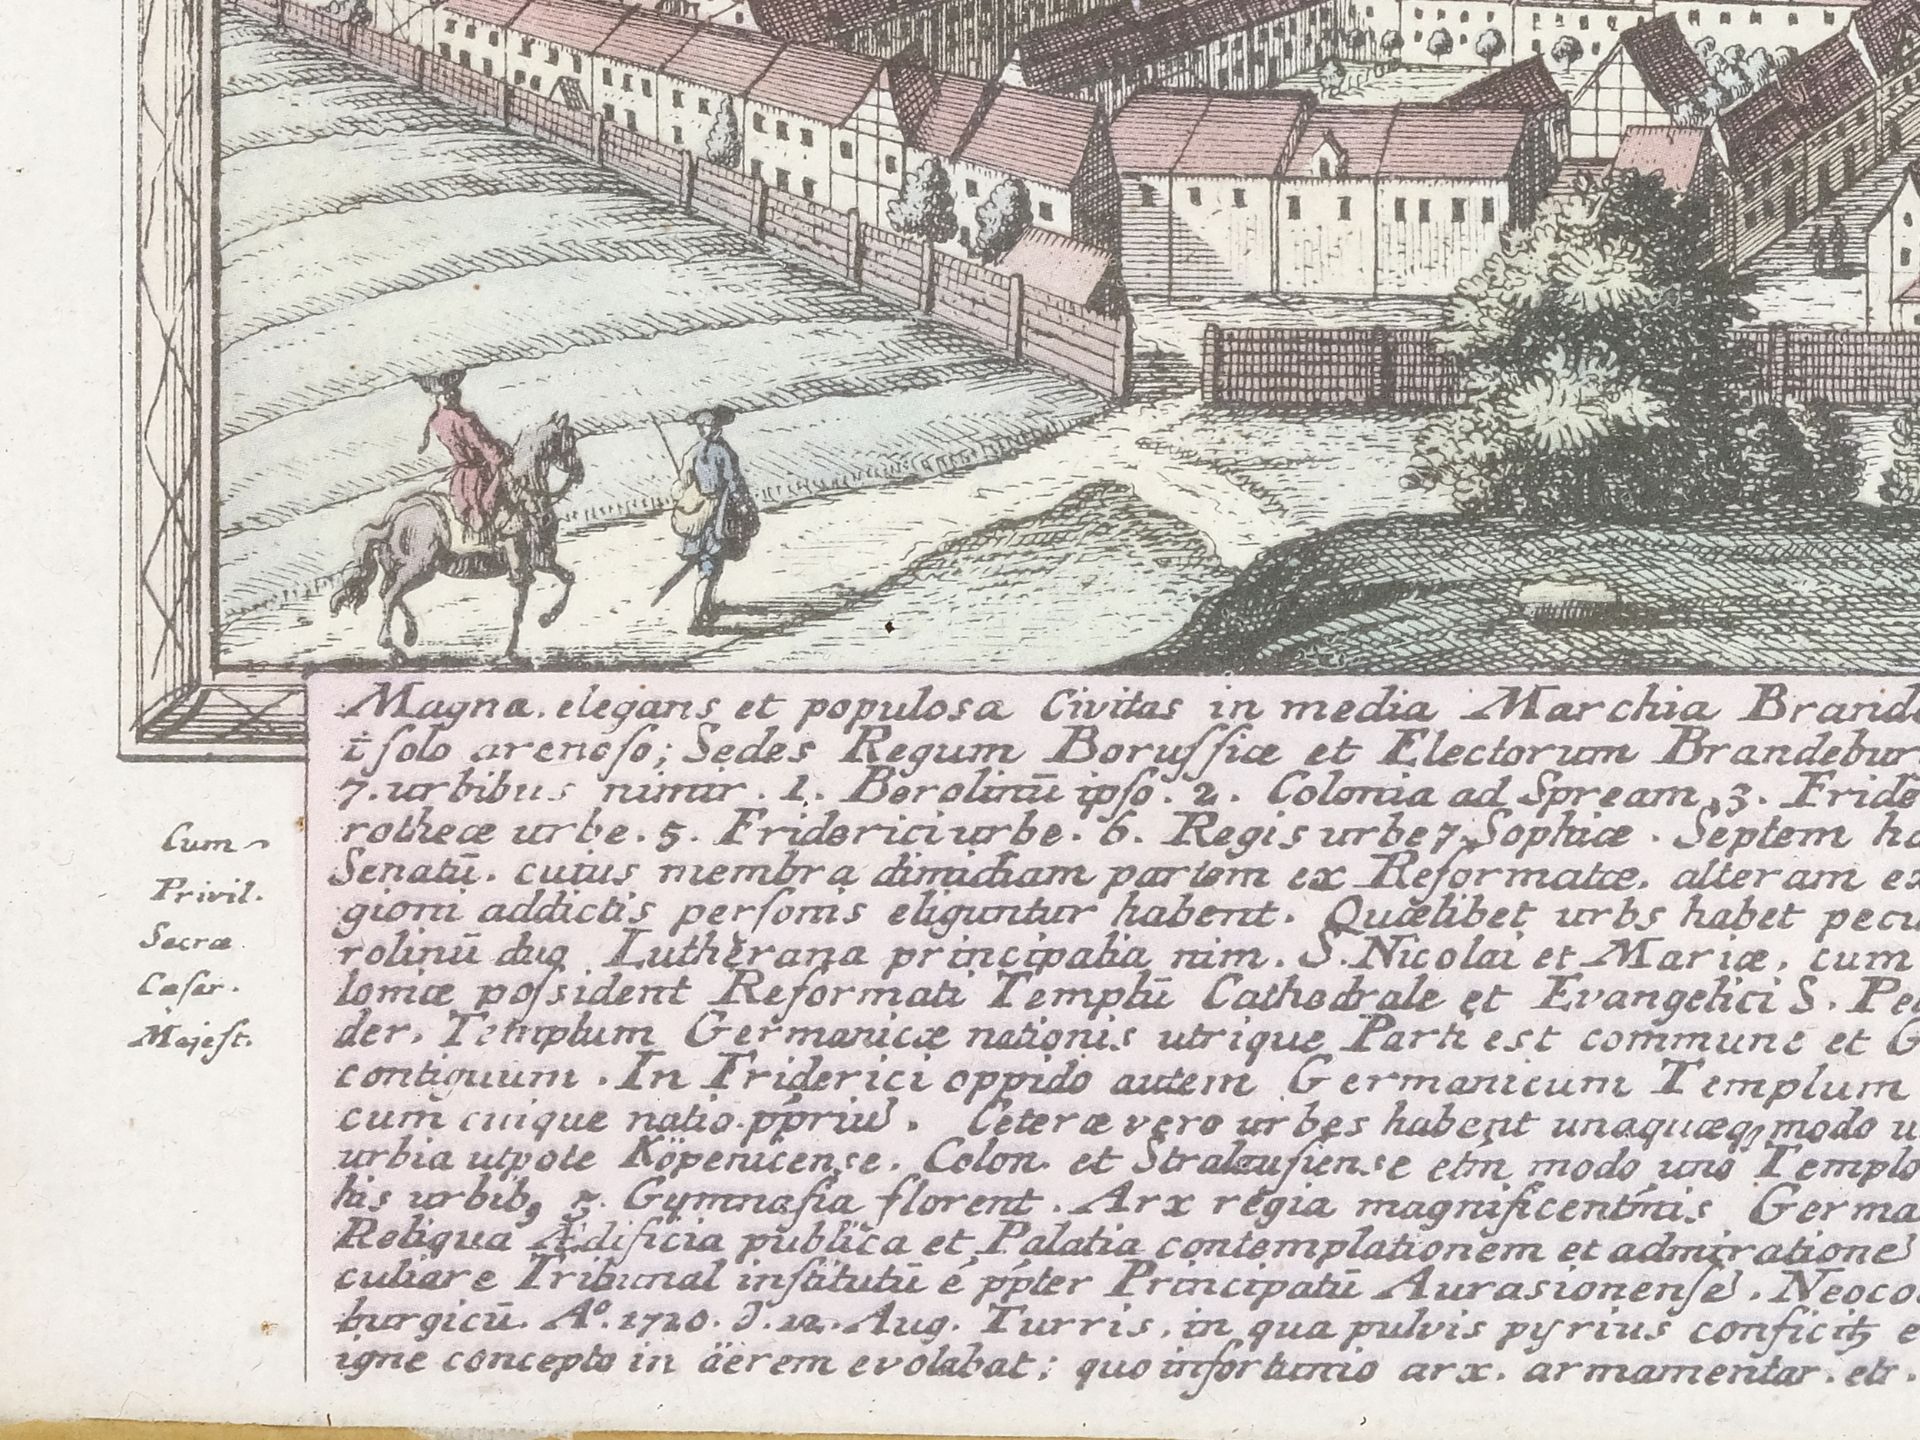 Magna. elegans et populosa Civitas in media Marchia Brande
ī solo arenoso; Sedes Regum Borussiæ et Electorum Brandebur
7. urbibus nimir. 1. Berolinū ipso. 2. Colonia ad Spream, 3. Fride
rotheæ urbe. 5. Friderici urbe. 6. Regis urbe 7. Sophiæ. Septem ha
Senatū. cuius membra dimidiam partem ex Reformatæ, alteram ex
gioni addictis personis eliguntur habent. Quælibet urbs habet pecu
rolinū duo Lutherana principalia nim. S. Nicolai et Mariæ, cum
loniæ possident Reformati Templū Cathedrale et Evangelici S. Pe
der. Templum Germanicæ nationis utrique Parti est commune et G
contiguum. In Friderici oppido autem Germanicum Templum
cum cuique natio
Ceteræ vero urbes habent unaquæq modo u
urbia utpote Köpenicense, Colon. et Stralausiense etm modo uno Templo
his urbib, 3. Gymnasia florent. Arx regia Germa
Reliqua Ædificia publica et Palatia contemplationem et admiratione
culiare Tribunal institutū é ṕpter Principatū Aurasionense. Neoco
burgicū. Aº. 1720. d. 12. Aug. Turris, in qua pulvis pyrius e
igne concepto in äerem evolabat; quo infortunio arx. armamentar. etr.
Cum
Privil.
Sacræ
Cæsar.
Majest.